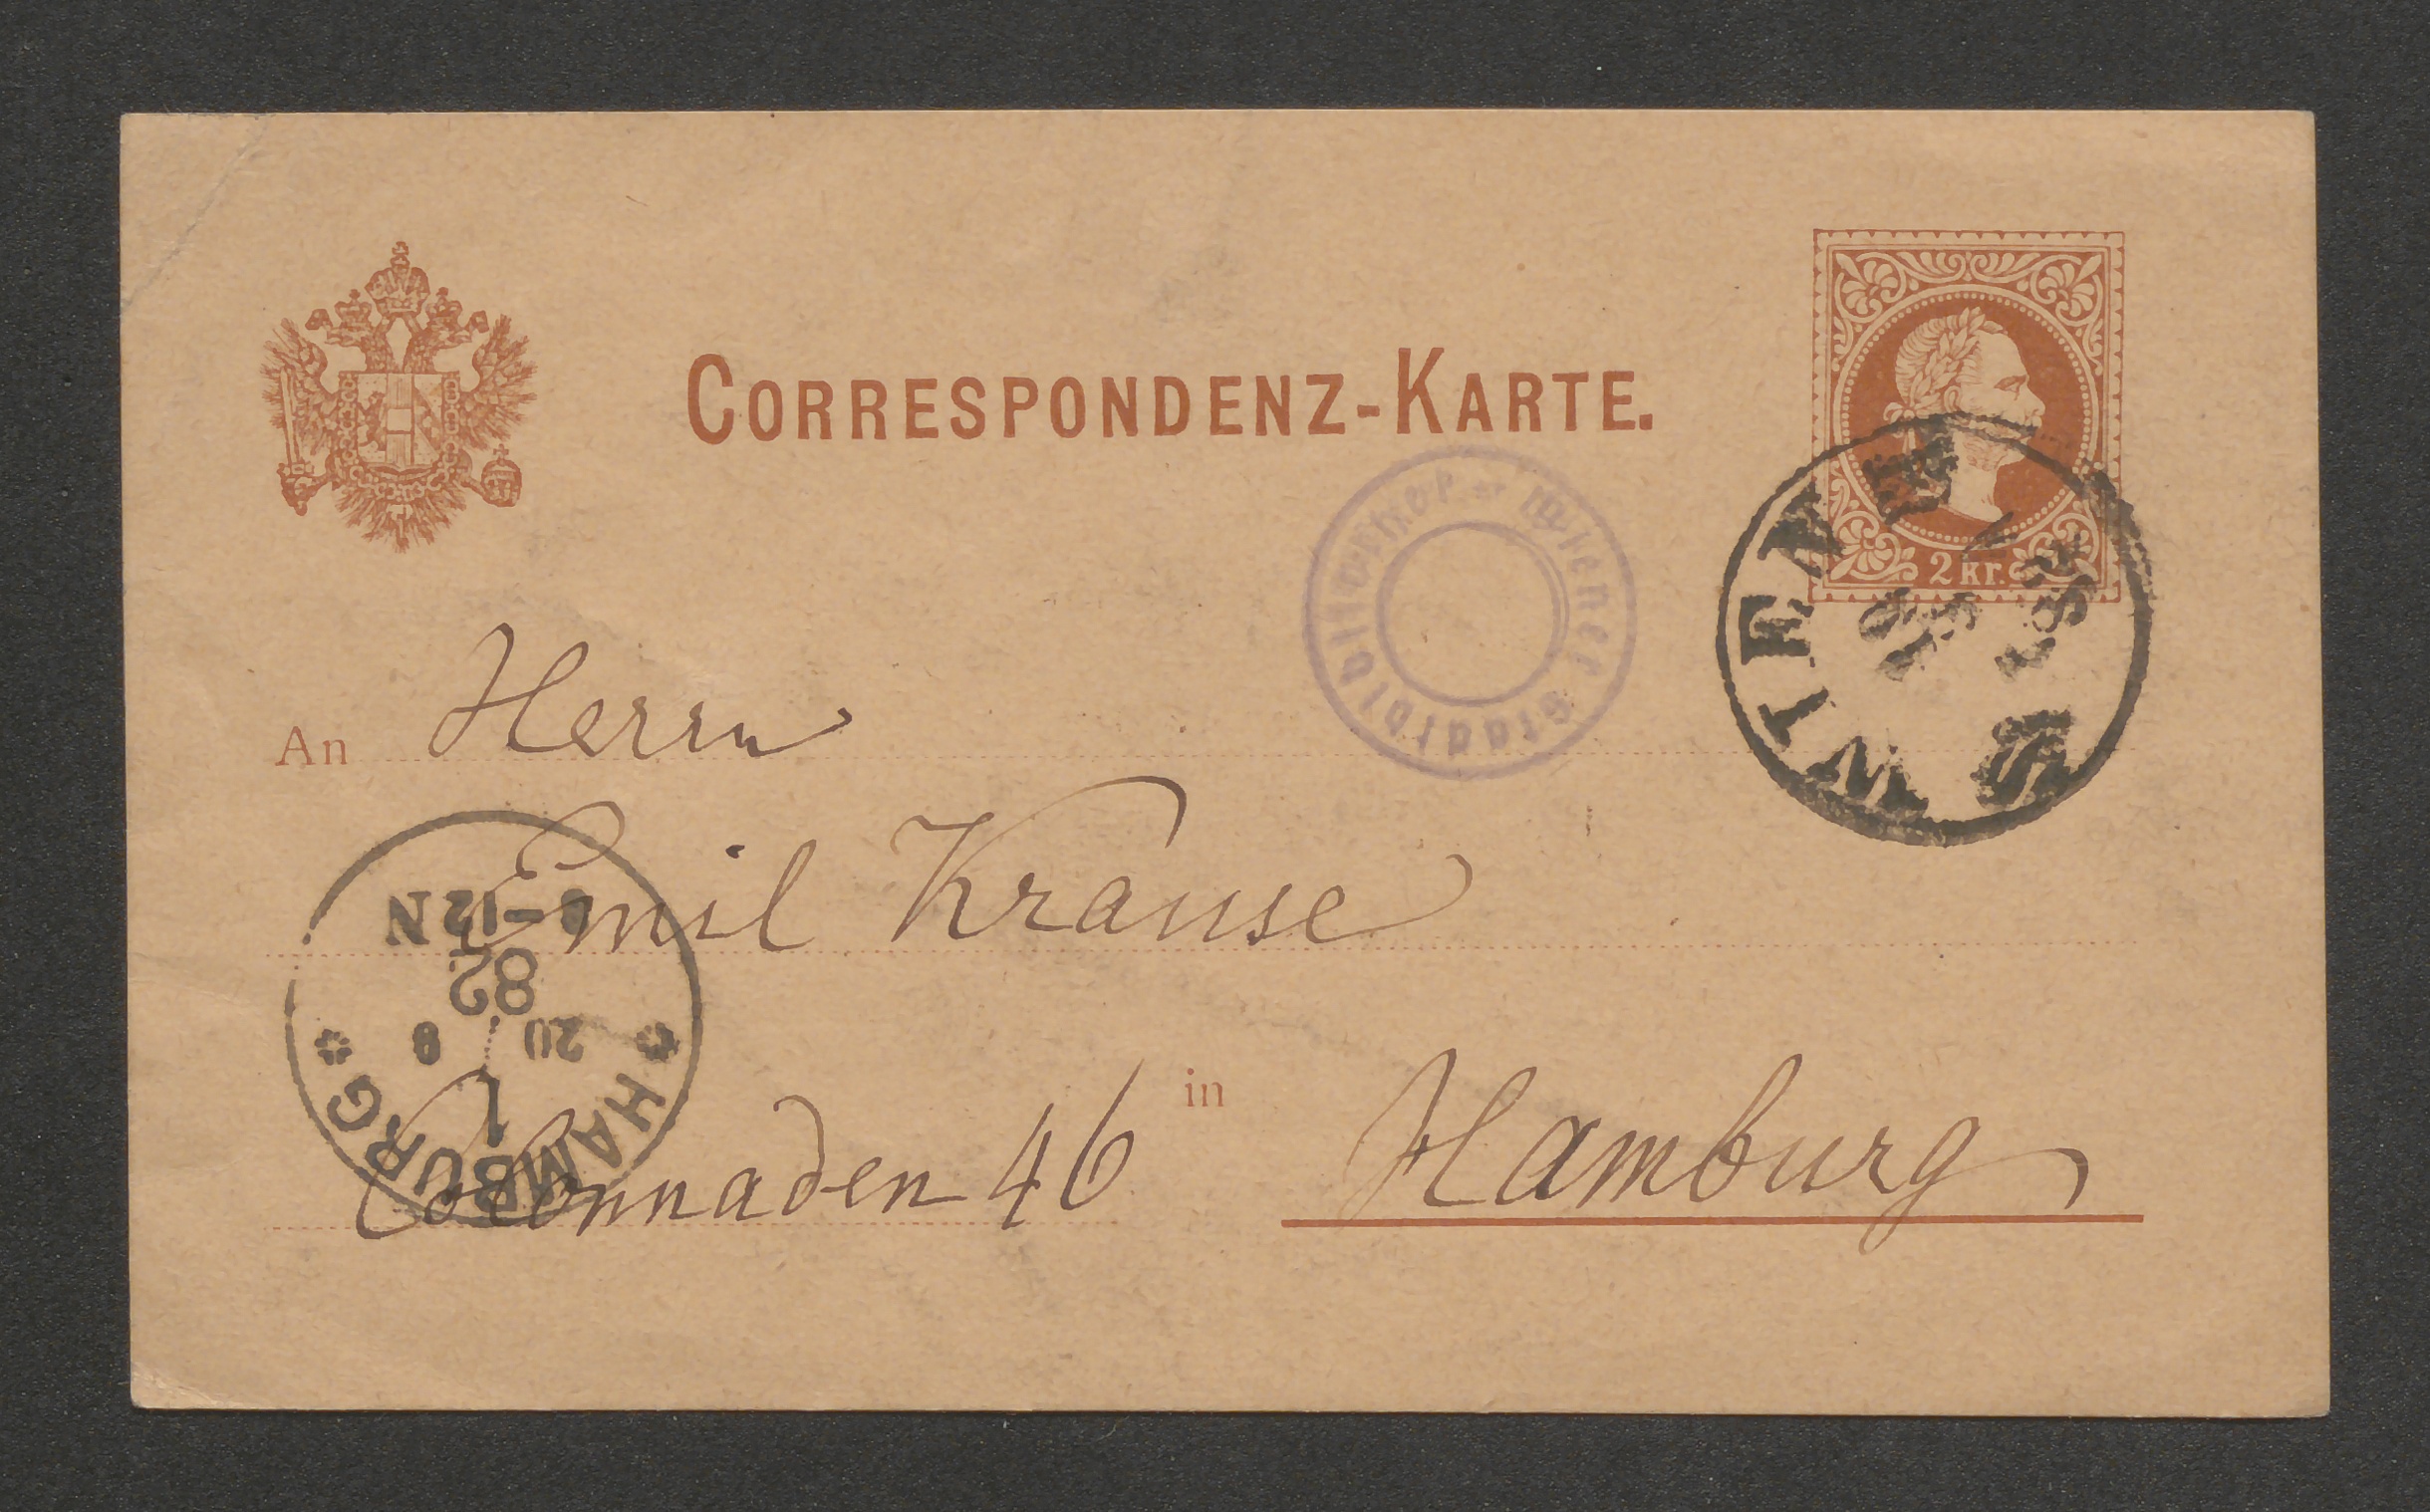 CORRESPONDENZ-KARTE.
2 kr.
Wiener Stadtbibliothek
WIEN
An Herrn
Emil Krause
Colonnaden 46 in Hamburg
* HAMBURG *
1
20 8
82
-12N